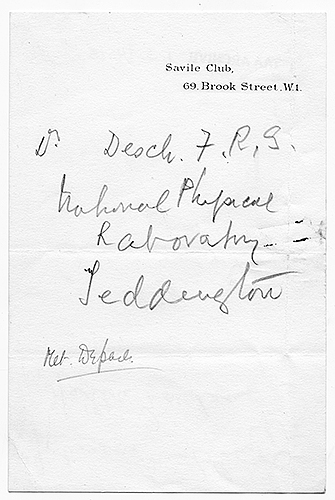 Savile Club,
69. Brook Street. W.1.
Dr Desch. F.R.S.
National Physical
Laboratory
Teddington
Met. Depart.